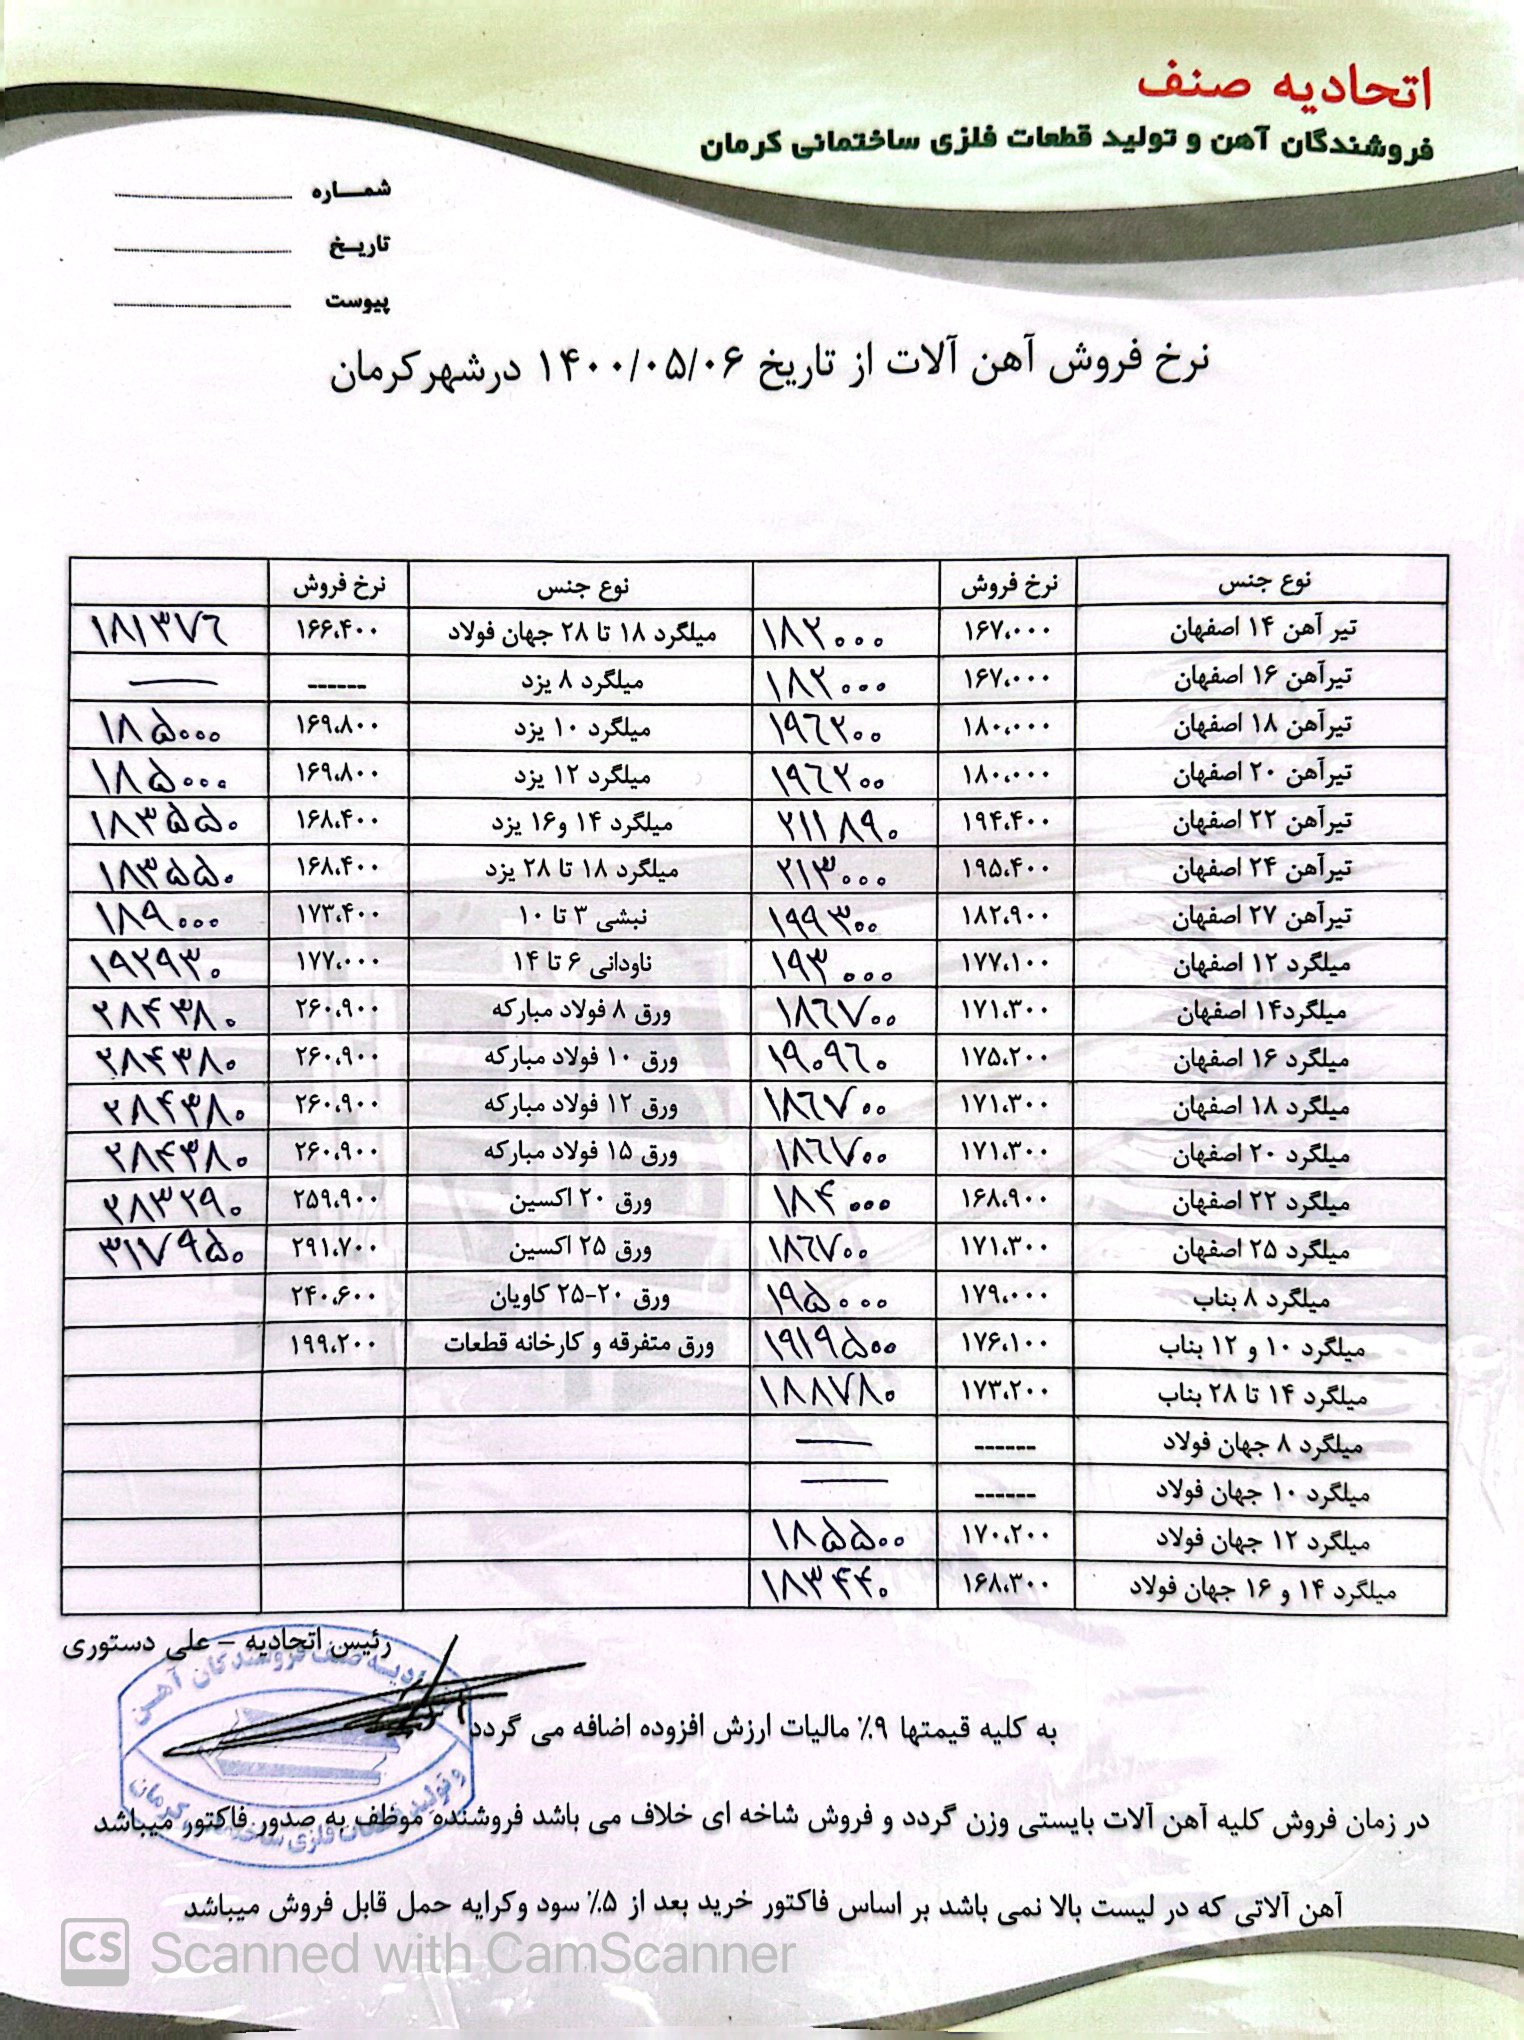 اتحادیه صنف
فروشندگان آهن و تولید قطعات فلزی ساختمانی کرمان
شمـــاره
تاریـخ
پیوست
نرخ فروش آهن آلات از تاریخ ۱۴۰۰/۰۵/۰۶ درشهرکرمان
نوع جنس نرخ فروش نوع جنس نرخ فروش
تیر آهن ۱۴ اصفهان ۱۶۷،۰۰۰ ۱۸۲۰۰۰ میلگرد ۱۸ تا ۲۸ جهان فولاد ۱۶۶،۴۰۰ ۱۸۱۳۷۶
تیرآهن ۱۶ اصفهان ۱۶۷،۰۰۰ ۱۸۲۰۰۰ میلگرد ۸ یزد ------ —
تیرآهن ۱۸ اصفهان ۱۸۰،۰۰۰ ۱۹۶۲۰۰ میلگرد ۱۰ یزد ۱۶۹،۸۰۰ ۱۸۵۰۰۰
تیرآهن ۲۰ اصفهان ۱۸۰،۰۰۰ ۱۹۶۲۰۰ میلگرد ۱۲ یزد ۱۶۹،۸۰۰ ۱۸۵۰۰۰
تیرآهن ۲۲ اصفهان ۱۹۴،۴۰۰ ۲۱۱۸۹۰ میلگرد ۱۴ و۱۶ یزد ۱۶۸،۴۰۰ ۱۸۳۵۵۰
تیرآهن ۲۴ اصفهان ۱۹۵،۴۰۰ ۲۱۳۰۰۰ میلگرد ۱۸ تا ۲۸ یزد ۱۶۸،۴۰۰ ۱۸۳۵۵۰
تیرآهن ۲۷ اصفهان ۱۸۲،۹۰۰ ۱۹۹۳۰۰ نبشی ۳ تا ۱۰ ۱۷۳،۴۰۰ ۱۸۹۰۰۰
میلگرد ۱۲ اصفهان ۱۷۷،۱۰۰ ۱۹۳۰۰۰ ناودانی ۶ تا ۱۴ ۱۷۷،۰۰۰ ۱۹۲۹۳۰
میلگرد۱۴ اصفهان ۱۷۱،۳۰۰ ۱۸۶۷۰۰ ورق ۸ فولاد مبارکه ۲۶۰،۹۰۰ ۲۸۴۳۸۰
میلگرد ۱۶ اصفهان ۱۷۵،۲۰۰ ۱۹۰۹۶۰ ورق ۱۰ فولاد مبارکه ۲۶۰،۹۰۰ ۲۸۴۳۸۰
میلگرد ۱۸ اصفهان ۱۷۱،۳۰۰ ۱۸۶۷۰۰ ورق ۱۲ فولاد مبارکه ۲۶۰،۹۰۰ ۲۸۴۳۸۰
میلگرد ۲۰ اصفهان ۱۷۱،۳۰۰ ۱۸۶۷۰۰ ورق ۱۵ فولاد مبارکه ۲۶۰،۹۰۰ ۲۸۴۳۸۰
میلگرد ۲۲ اصفهان ۱۶۸،۹۰۰ ۱۸۴۰۰۰ ورق ۲۰ اکسین ۲۵۹،۹۰۰ ۲۸۳۲۹۰
میلگرد ۲۵ اصفهان ۱۷۱،۳۰۰ ۱۸۶۷۰۰ ورق ۲۵ اکسین ۲۹۱،۷۰۰ ۳۱۷۹۵۰
میلگرد ۸ بناب ۱۷۹،۰۰۰ ۱۹۵۰۰۰ ورق ۲۰-۲۵ کاویان ۲۴۰،۶۰۰
میلگرد ۱۰ و ۱۲ بناب ۱۷۶،۱۰۰ ۱۹۱۹۵۰۰ ورق متفرقه و کارخانه قطعات ۱۹۹،۲۰۰
میلگرد ۱۴ تا ۲۸ بناب ۱۷۳،۲۰۰ ۱۸۸۷۸۰
میلگرد ۸ جهان فولاد ------ —
میلگرد ۱۰ جهان فولاد ------ —
میلگرد ۱۲ جهان فولاد ۱۷۰،۲۰۰ ۱۸۵۵۰۰
میلگرد ۱۴ و ۱۶ جهان فولاد ۱۶۸،۳۰۰ ۱۸۳۴۴۰
رئیس اتحادیه – علی دستوری
به کلیه قیمتها ۹٪ مالیات ارزش افزوده اضافه می گردد
در زمان فروش کلیه آهن آلات بایستی وزن گردد و فروش شاخه ای خلاف می باشد فروشنده موظف به صدور فاکتور میباشد
آهن آلاتی که در لیست بالا نمی باشد بر اساس فاکتور خرید بعد از ۵٪ سود وکرایه حمل قابل فروش میباشد
CS Scanned with CamScanner